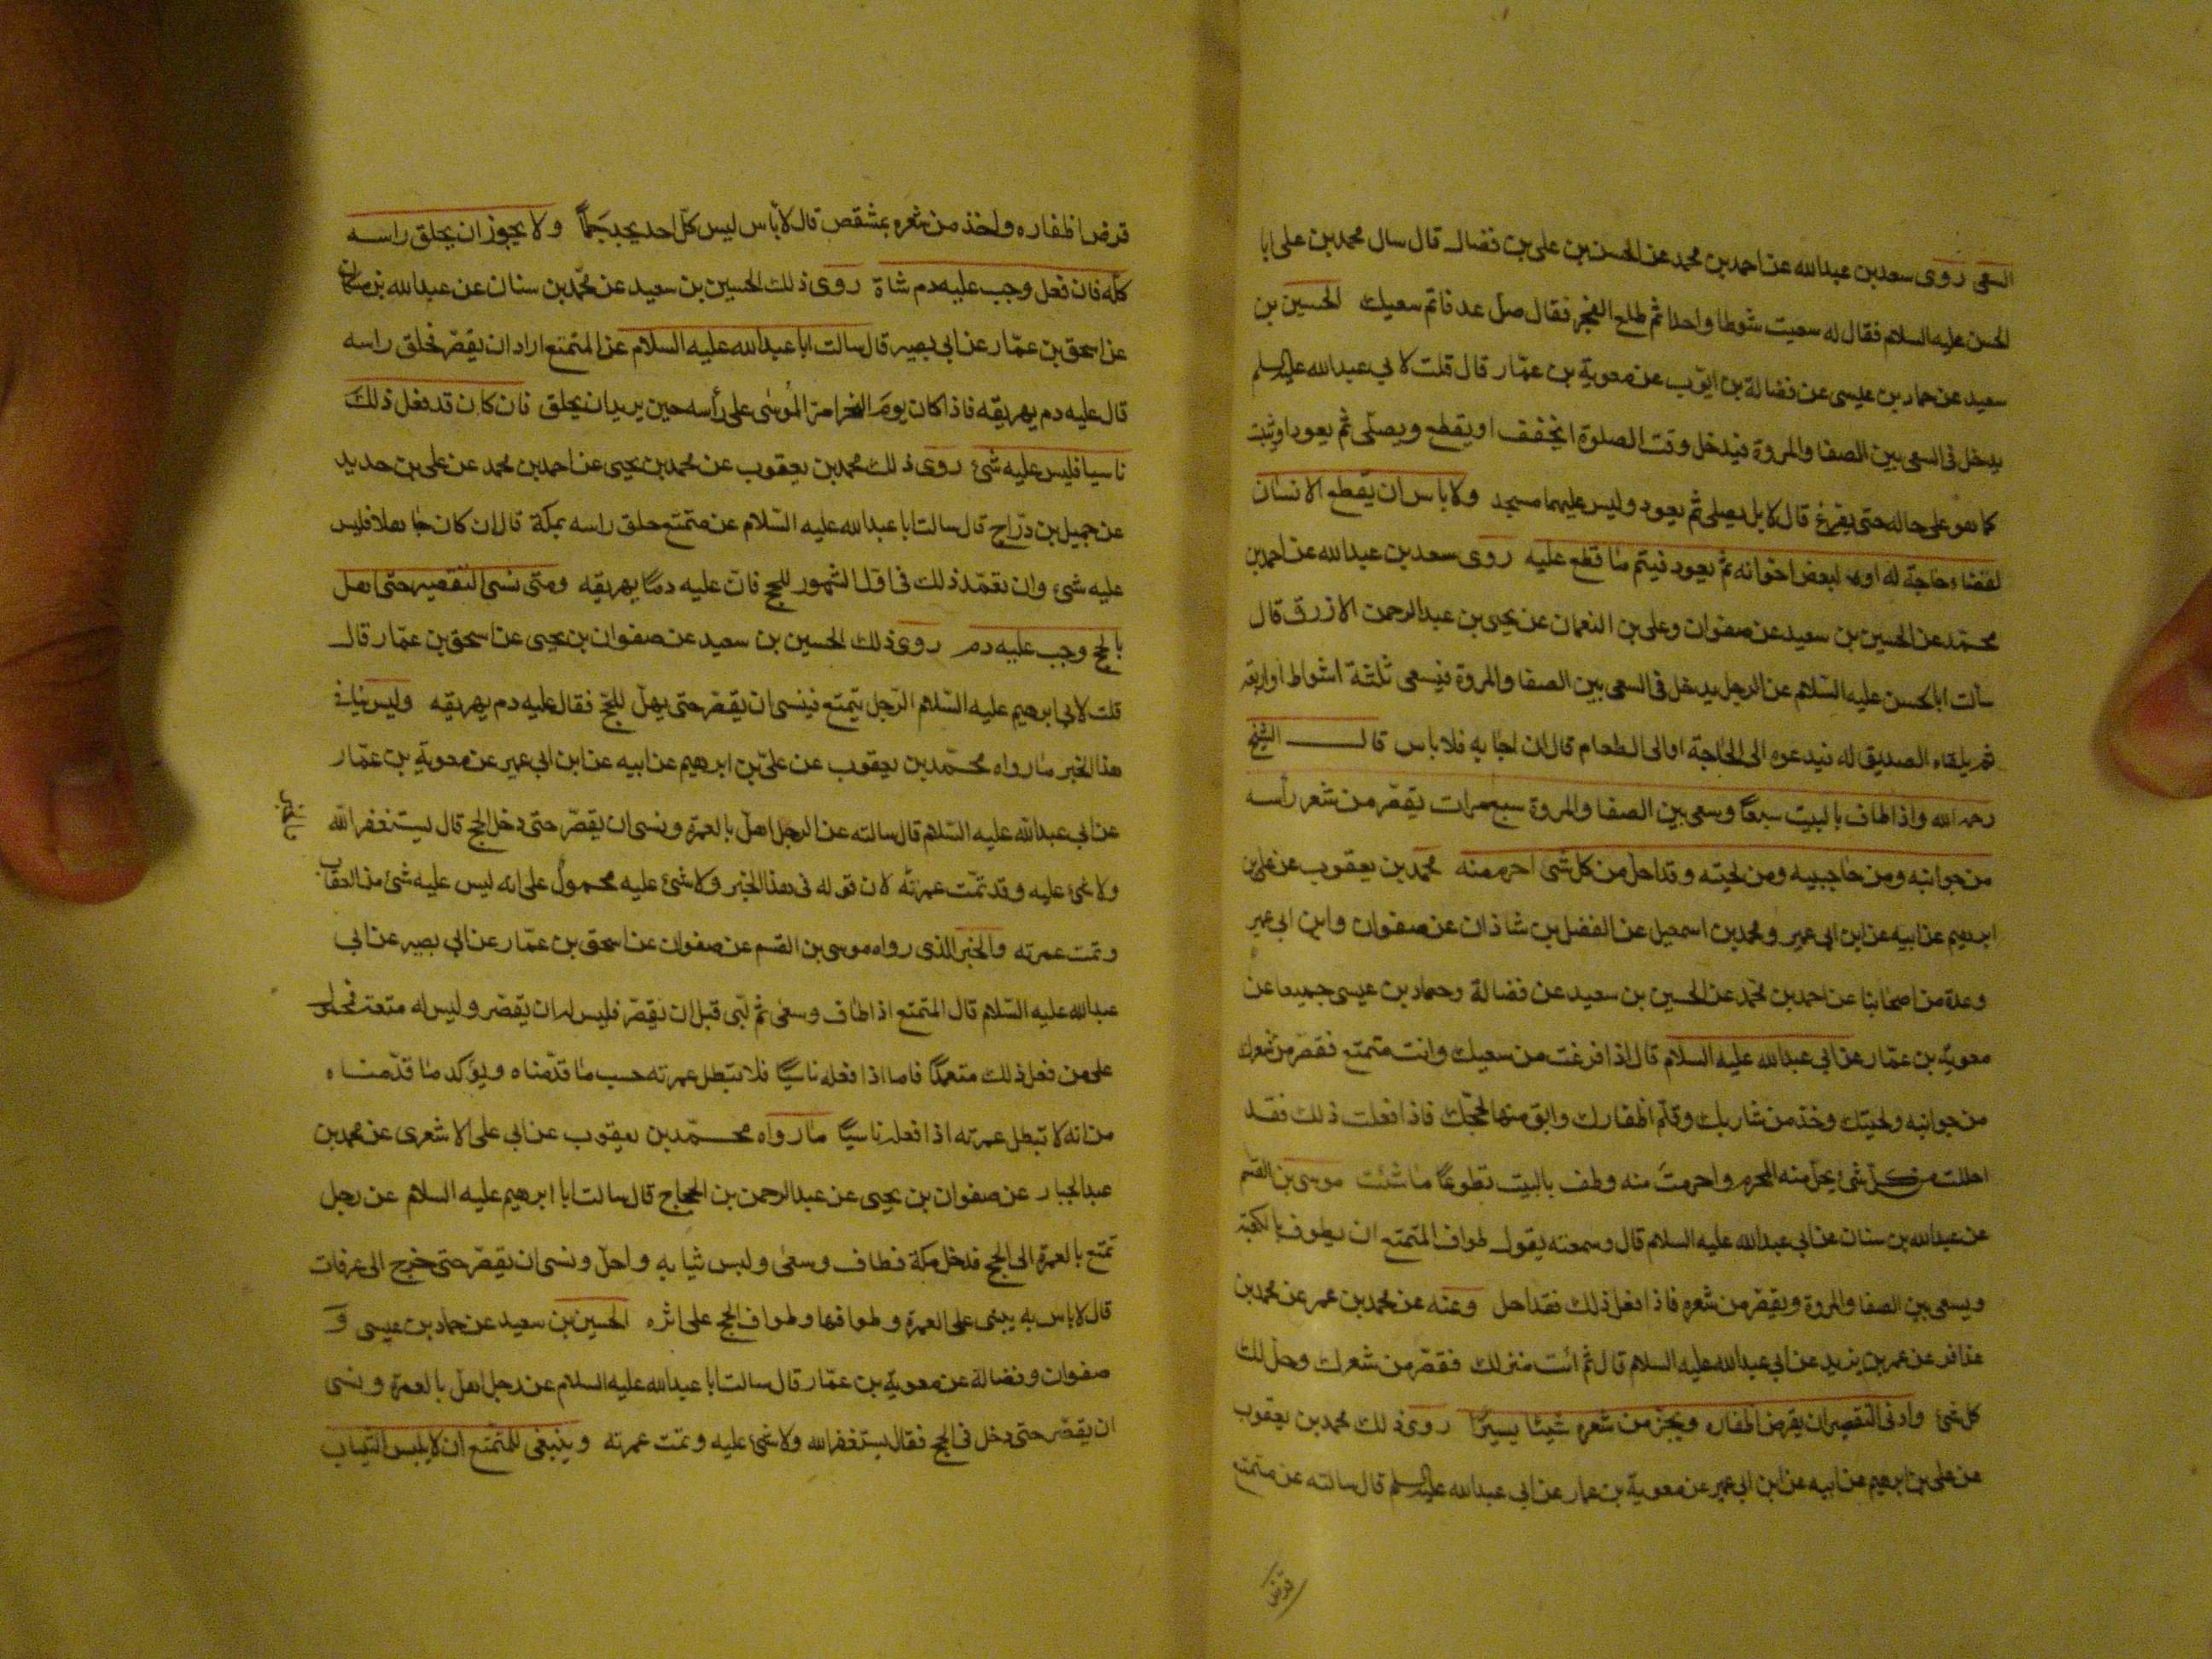 السعى روى سعد بن عبدالله عن احمد بن محمد عن الحسن بن على بن فضال قال سال محمد بن على ابا
الحسن عليه السلام فقال له سعيت شوطا واحدا ثم طلع الفجر فقال صل عد فاتم سعيك الحسين بن
سعيد عن حماد بن عيسى عن فضالة بن ايوّب عن معوية بن عمّار قال قلت لابي عبدالله عليه السلم
يدخل فى السعى بين الصفا والمروة فيدخل وقت الصلوة ايخفف او يقطع ويصلّى ثم يعود اويثبت
كما هو على حاله حتى يفرغ قال لا بل يصلى ثم يعود وليس عليهما مسجد ولا باس ان يقطع الانسان
لقضاء حاجة له او لبعض اخوانه ثم يعود فيتم ما قطع عليه روى سعد بن عبدالله عن احمد بن
محمّد عن الحسين بن سعيد عن صفوان وعلى بن النعمان عن يحيى بن عبدالرحمن الازرق قال
سالت ابا الحسن عليه السّلام عن الرجل يدخل فى السعى بين الصفا والمروة فيسعى ثلثة اشواط او اربعة
ثم يلقاه الصديق له فيدعوه الى الحاجة او الى الطعام قال ان اجابه فلا باس قال الشيخ
رحمه الله واذا طاف بالبيت سبعًا وسعى بين الصفا والمروة سبع مرات يقصّر من شعر رأسه
من جوانبه ومن حاجبيه ومن لحيته وقد احل من كل شى احرم منه محمد بن يعقوب عن على بن
ابرهيم عن ابيه عن ابن ابي عمير ومحمد بن اسمعيل عن الفضل بن شاذان عن صفوان وابن ابي عمير
وعدة من اصحابنا عن احمد بن محمّد عن الحسين بن سعيد عن فضالة وحماد بن عيسى جميعا عن
معوية بن عمّار عن ابي عبدالله عليه السلام قال اذا فرغت من سعيك وانت متمتع فقصّر من شعرك
من جوانبه ولحيتك وخذ من شاربك وقلّم اظفارك وابق منها لحجّك فاذا فعلت ذلك فقد
احللت من كلّ شئ يحلّ منه المحرم واحرمت منه وطف بالبيت تطوعًا ما شئت موسى بن القسم
عن عبدالله بن سنان عن ابي عبدالله عليه السلام قال وسمعته يقول طواف المتمتع ان يطوف بالكعبة
ويسعى بين الصفا والمروة ويقصّر من شعره فاذا فعل ذلك فقد احل وعنه عن محمد بن عمر عن محمد بن
عذافر عن عمر بن يزيد عن ابي عبدالله عليه السلام قال ثم ائت منزلك فقصّر من شعرك وحلّ لك
كل شئ وادنى التقصير ان يقرض اظفاره ويجزّ من شعره شيئا يسيرًا روى ذلك محمد بن يعقوب
عن على بن ابرهيم عن ابيه عن ابن ابي عمير عن معوية بن عمار عن ابي عبدالله عليه السلم قال سالته عن متمتع
قرض
قرض اظفاره واخذ من شعره بمشقص قال لا باس ليس كلّ احد يجد جَلَمًا ولا يجوز ان يحلق راسه
كلّه فان فعل وجب عليه دم شاة روى ذلك الحسين بن سعيد عن محمّد بن سنان عن عبدالله بن مسكان
عن اسحق بن عمّار عن ابي بصير قال سالت ابا عبدالله عليه السلام عن المتمتع اراد ان يقصّر فحلق راسه
قال عليه دم يهريقه فاذا كان يوم النحر امرّ الموسٰى على رأسه حين يريد ان يحلق فان كان قد فعل ذلك
ناسيا فليس عليه شئ روى ذلك محمد بن يعقوب عن محمد بن يحيى عن احمد بن محمد عن على بن حديد
عن جميل بن درّاج قال سالت ابا عبدالله عليه السّلام عن متمتع حلق راسه بمكّة قال ان كان جاهلا فليس
عليه شئ وان تعمّد ذلك فى اول الشهور للحج فانّ عليه دمًا يهريقه ومتى نسى التقصير حتى اهل
بالحج وجب عليه دم روى ذلك الحسين بن سعيد عن صفوان بن يحيى عن اسحق بن عمّار قال
قلت لابي ابرهيم عليه السّلام الرّجل يتمتع فينسى ان يقصّر حتى يهلّ للحجّ فقال عليه دم يهريقه وليس ينافى
هذا الخبر ما رواه محمّد بن يعقوب عن علىّ بن ابرهيم عن ابيه عن ابن ابي عمير عن معوية بن عمّار
عن ابي عبدالله عليه السّلام قال سالته عن الرجل اهلّ بالعمرة ونسى ان يقصّر حتى دخل الحج قال يستغفر الله
ولا شئ عليه وقد تمّت عمرته لان قوله فى هذا الخبر ولا شئ عليه محمولٌ على انه ليس عليه شئ من العقاب
وتمت عمرته والخبر الذى رواه موسى بن القسم عن صفوان عن اسحق بن عمّار عن ابي بصير عن ابي
عبدالله عليه السّلام قال المتمتع اذا طاف وسعٰى ثم لبّى قبل ان يقصّر فليس له ان يقصّر وليس له متعة فمحمول
على من فعل ذلك متعمدًا فاما اذا فعله ناسيًا فلا تبطل عمرته حسب ما قدّمناه ويؤكد ما قدّمناه
من انه لا تبطل عمرته اذا فعله ناسيًا ما رواه محمّد بن يعقوب عن ابي على الاشعرى عن محمد بن
عبدالجبار عن صفوان بن يحيى عن عبدالرحمن بن الحجاج قال سالت ابا ابرهيم عليه السلام عن رجل
تمتع بالعمرة الى الحج فدخل مكة فطاف وسعٰى ولبس ثيابه واحلّ ونسى ان يقصّر حتى خرج الى عرفات
قال لا باس به يبنى على العمرة وطوافها وطواف الحج على اثره الحسين بن سعيد عن حماد بن عيسى و
صفوان وفضالة عن معوية بن عمّار قال سالت ابا عبدالله عليه السلام عن رجل اهلّ بالعمرة ونسى
ان يقصّر حتى دخل فى الحج فقال يستغفر الله ولا شئ عليه وتمّت عمرته وينبغى للمتمتع ان لا يلبس الثياب